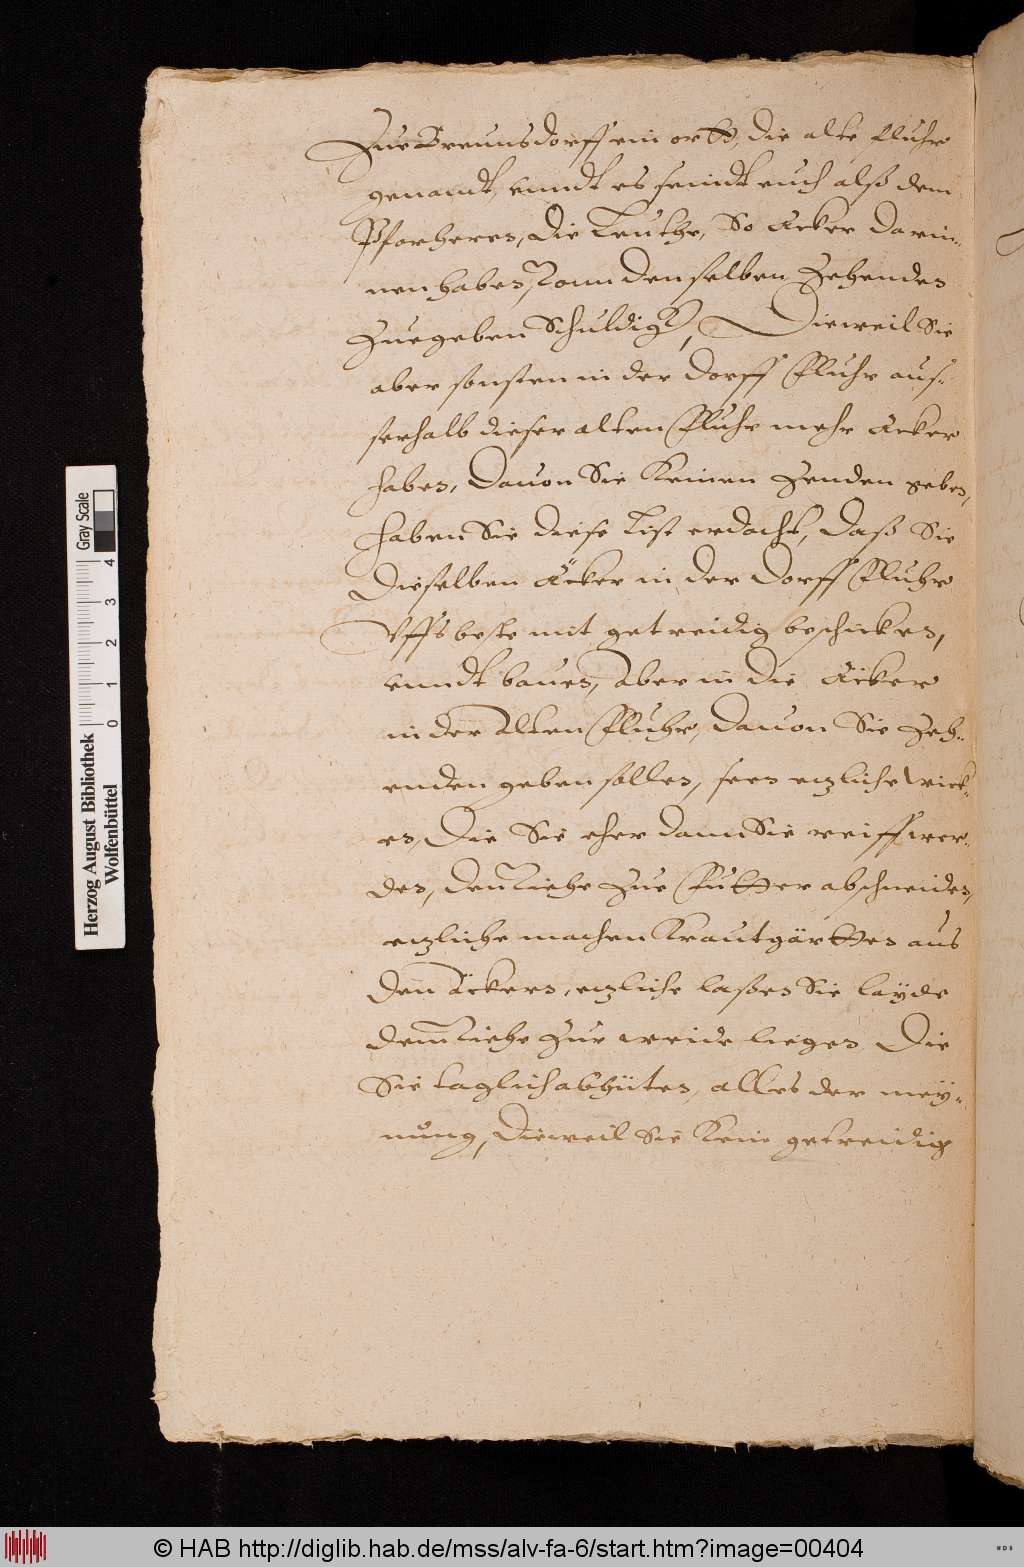 Zue Breunsdorff ein ortt, die alte Fluhr
genandt, unndt es seindt auch alß dem
Pfarherrn, die Leuthe, So Äcker darin-
nen haben, vonn denselben Zehenden
Zuegeben Schuldigk, Dieweil Sie
aber sonsten in der Dorff Fluhr aus-
serhalb dieser alten Fluhr mehr Äcker
haben, Dauon Sie Keinen Zenden geben,
Haben Sie diese List erdacht, Daß Sie
Dieselben Äcker in der Dorff Fluhr
Uffs beste mit getreidig beschicken,
unndt bauen, Aber in die Äcker
in der Alten Fluhr, Dauon Sie Zeh-
enden geben sollen, seen etzliche wick-
en, Die Sie eher dann Sie reiff wer-
den, dem Viehe Zue Futter abschneiden,
etzliche machen Krautgärtten aus
den Äckern, etzliche laßen Sie layde
dem Viehe Zur weide liegen Die
Sie taglich abhüten, alles der mey-
nung, Dieweil Sie Kein getreidig
Herzog August Bibliothek
Wolfenbüttel
0 1 2 3 4
Gray Scale
© HAB http://diglib.hab.de/mss/alv-fa-6/start.htm?image=00404